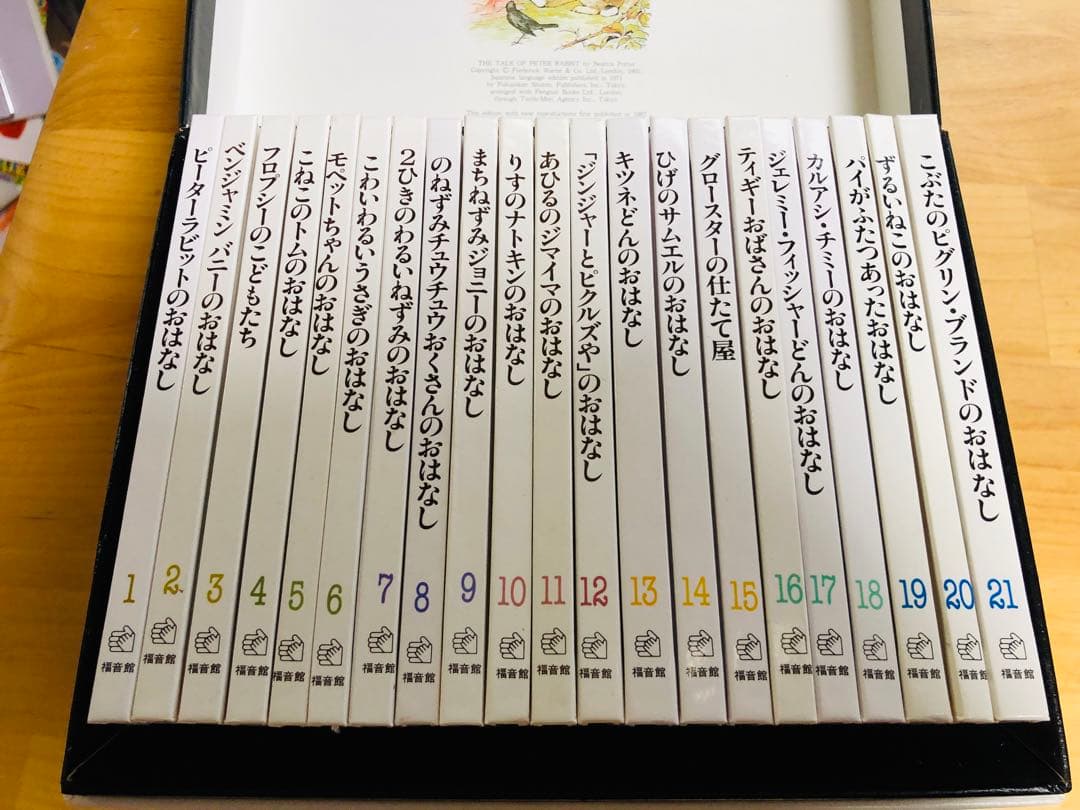 THE TALE OF PETER RABBIT by Beatrix Potter
Copyright © Frederick Warne & Co. Ltd., London, 1902
Japanese language edition published in 1971
by Fukuinkan Shoten, Publishers, Inc., Tokyo
arranged with Penguin Books Ltd., London
through Tuttle-Mori Agency Inc., Tokyo
This edition with new reproductions first published in
ピーターラビットのおはなし
1
福音館
ベンジャミン バニーのおはなし
2
福音館
フロプシーのこどもたち
3
福音館
こねこのトムのおはなし
4
福音館
モペットちゃんのおはなし
5
福音館
こわいわるいうさぎのおはなし
6
福音館
2ひきのわるいねずみのおはなし
7
福音館
のねずみチュウチュウおくさんのおはなし
8
福音館
まちねずみジョニーのおはなし
9
福音館
りすのナトキンのおはなし
10
福音館
あひるのジマイマのおはなし
11
福音館
「ジンジャーとピクルズや」のおはなし
12
福音館
キツネどんのおはなし
13
福音館
ひげのサムエルのおはなし
14
福音館
グロースターの仕たて屋
15
福音館
ティギーおばさんのおはなし
16
福音館
ジェレミー・フィッシャーどんのおはなし
17
福音館
カルアシ・チミーのおはなし
18
福音館
パイがふたつあったおはなし
19
福音館
ずるいねこのおはなし
20
福音館
こぶたのピグリン・ブランドのおはなし
21
福音館